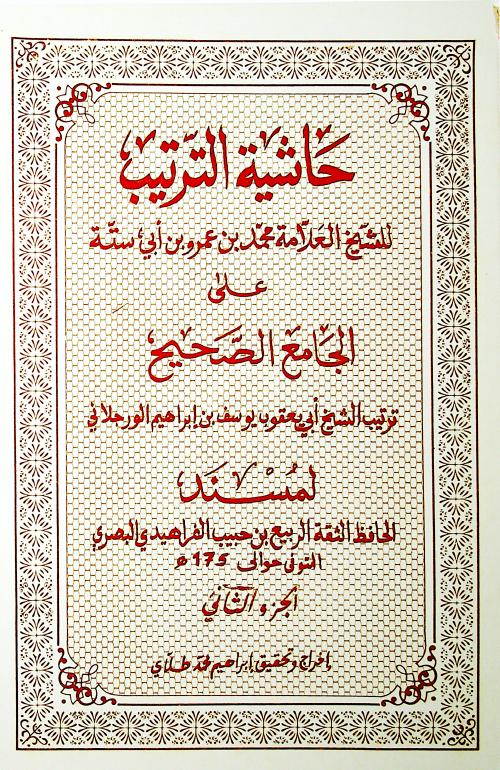 حَاشية التّرتيب
للشيخ العلاّمة محمّد بن عمرو بن أبي ستّة
على
الجامع الصّحيح
ترتيب الشيخ أبي يعقوب يوسف بن إبراهيم الورجلاني
لمُسْنَد
الحافظ الثقة الربيع بن حبيب الفراهيدي البصري
المتوفى حوالى 175 ه
الجزء الثاني
إخراج وتحقيق إبراهيم محمد طلاي